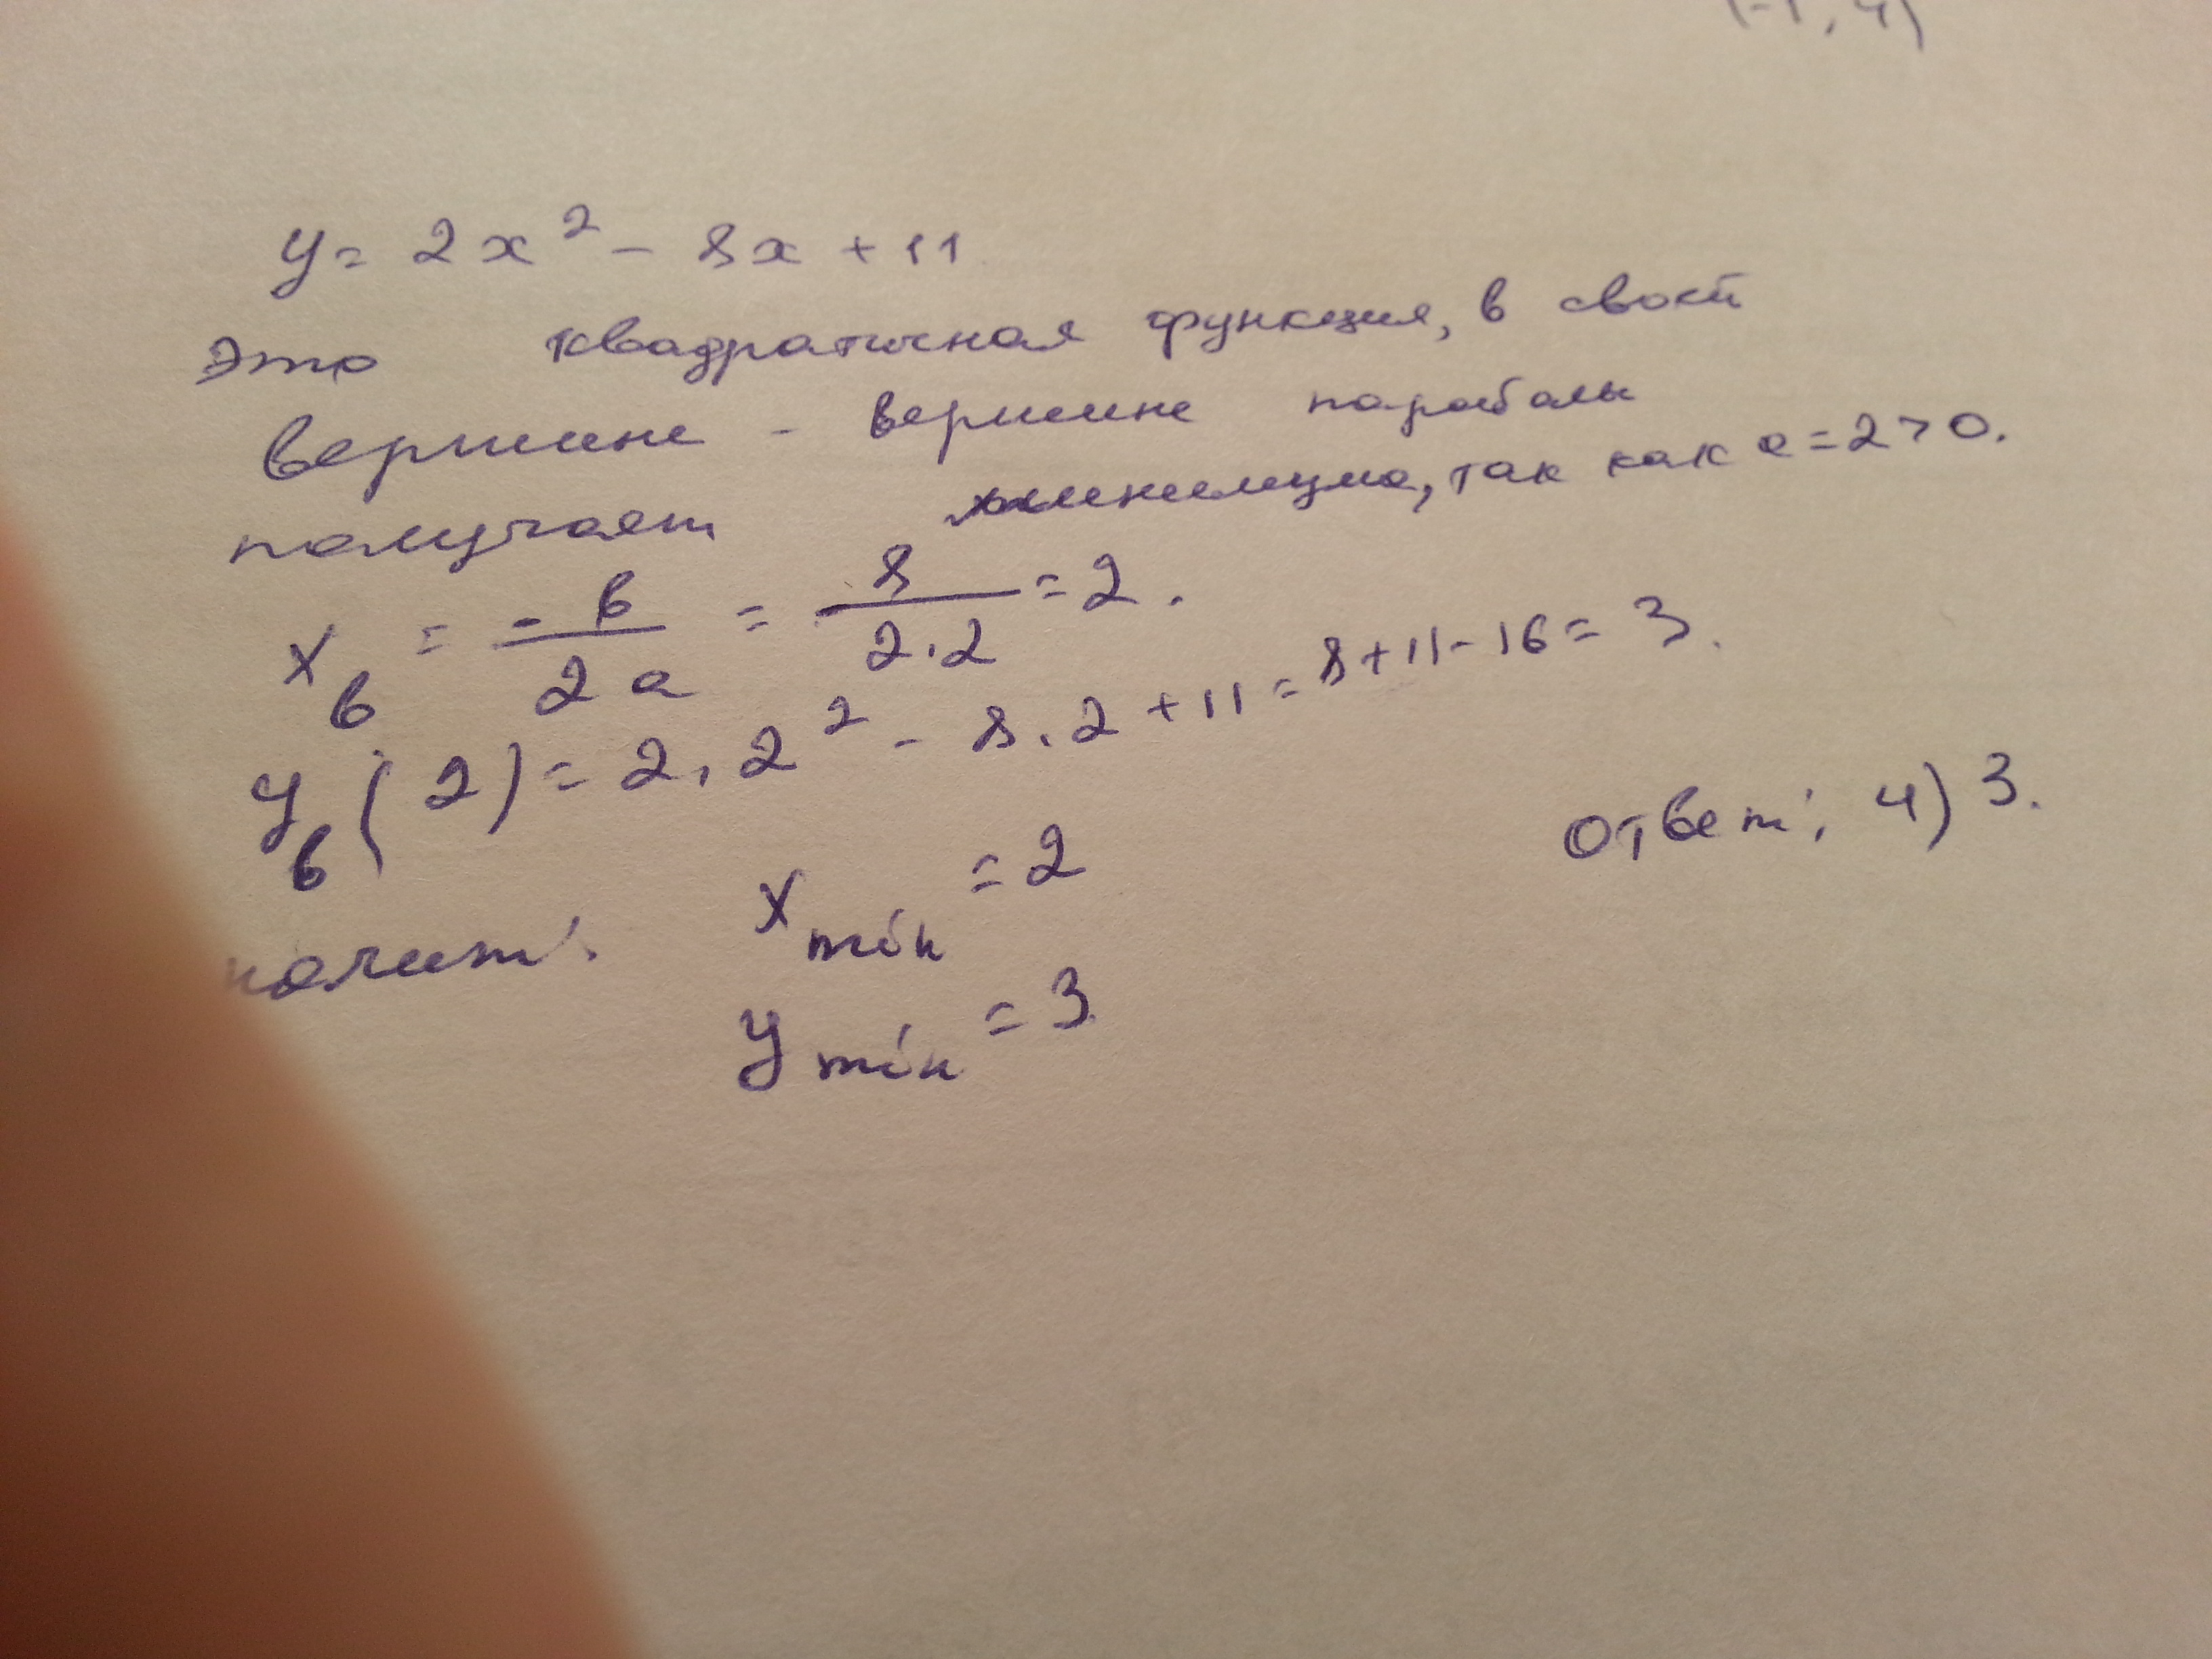 (-1; 4)
y = 2x² - 8x + 11
Это квадратичная функция, в своей
вершине - вершине параболы
получает минимума, так как a = 2 > 0.
x_в = -b / 2a = 8 / 2·2 = 2.
y_в(2) = 2·2² - 8·2 + 11 = 8 + 11 - 16 = 3.
Ответ: 4) 3.
начит: x min = 2
y min = 3